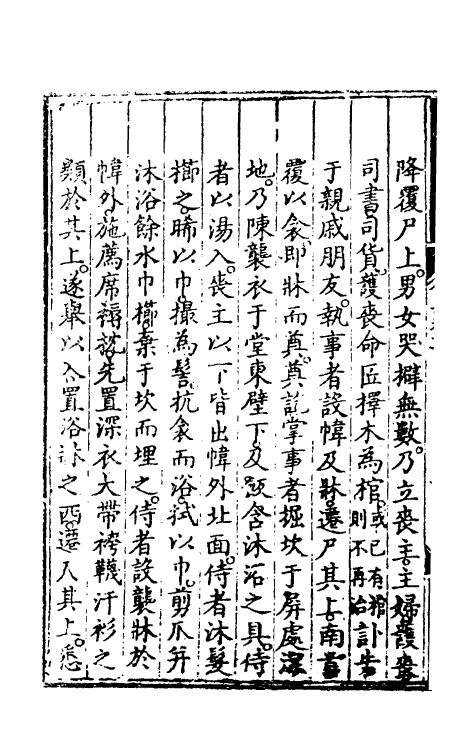 降覆尸上。男女哭擗無數。乃立喪主主婦護喪
司書司貨護喪命匠擇木為棺或已有棺則不再治訃告
于親戚朋友。執事者設幃及牀遷尸其上南首
覆以衾。即牀而奠。奠訖掌事者掘坎于屏處潔
地。乃陳襲衣于堂東壁下。及飯含沐浴之具。侍
者以湯入。喪主以下皆出幃外北面。侍者沐髮
櫛之晞以巾。撮為髻。抗衾而浴。拭以巾。剪爪并
沐浴餘水巾櫛棄于坎而埋之。侍者設襲牀於
幃外。施薦席褥枕。先置深衣大帶袴襪汗衫之
類於其上。遂舉以入置浴牀之西。遷入其上。悉